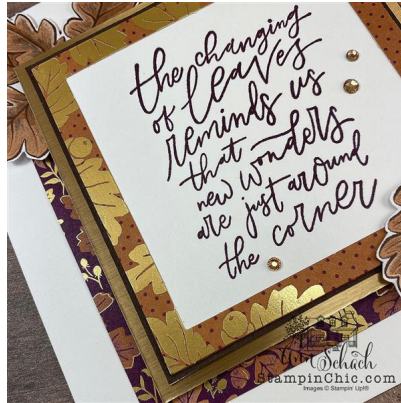 the changing
of leaves
reminds us
that new wonders
are just around
the corner
Schach
StampinChic.com
Images © Stampin' Up!®